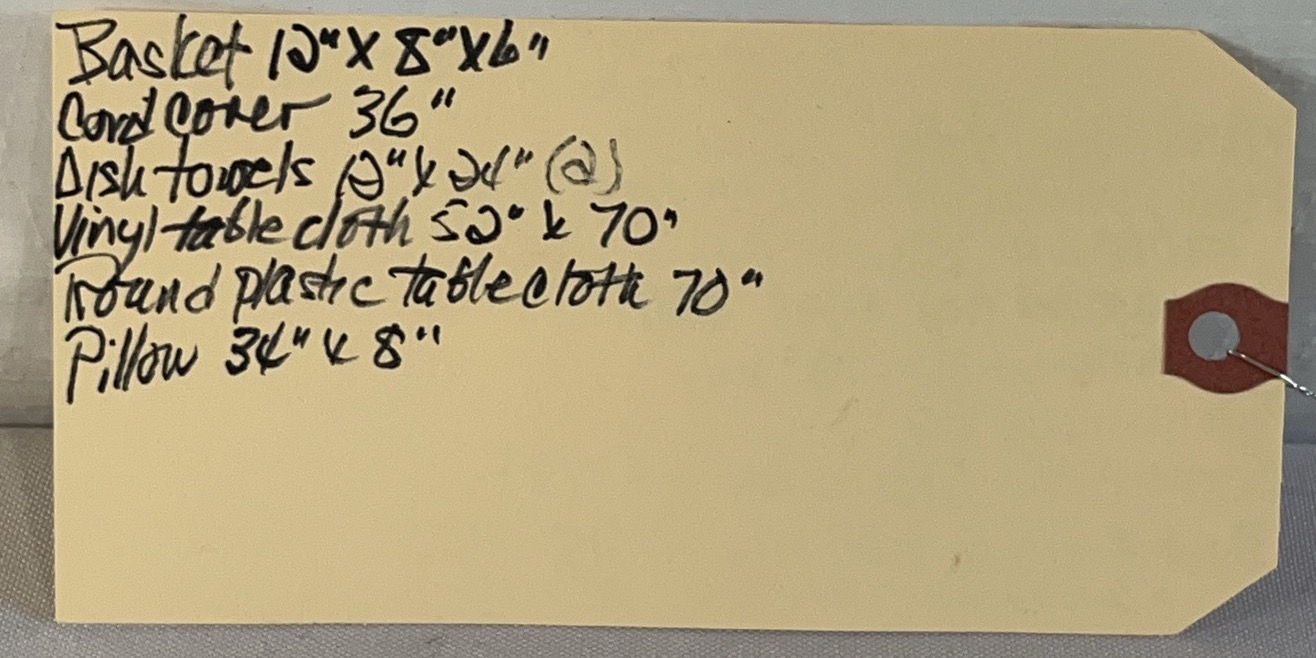 Basket 12" X 8" X 6"
Cord cover 36"
Dish towels 12" X 24" (2)
Vinyl table cloth 52" x 70"
Round plastic tablecloth 70"
Pillow 34" x 8"